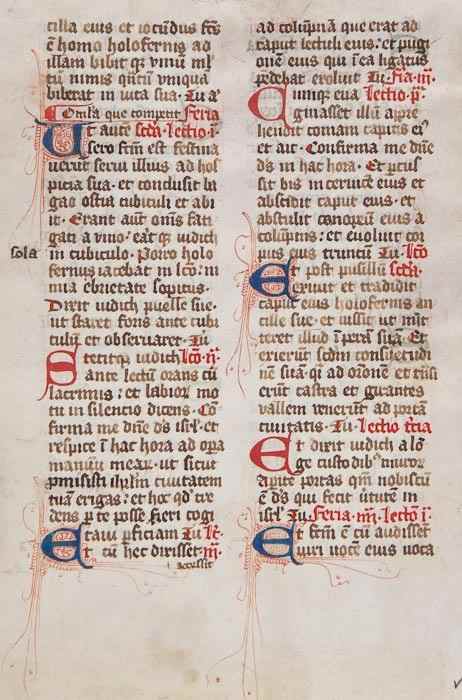 cilla eius et iocūdus fc̄s
ē homo holofernis ad
illam bibit qꝫ vinū ml̄
tū nimis qn̄tū vniqua
biberat in vita sua. Tu a
Om̄ia que competit Feria
Ut autē scd̄a. lectio .i.
sero fcm̄ est festina
uerūt serui illius ad hos
picia sua. et conclusit ba
gao ostia cubiculi et abi
it. Erant autē om̄s fati
gati a vino. eratqꝫ iudich
sola
in cubiculo. Porro holo
fernus iacebat in lc̄o. ni
mia ebrietate sopitus.
Dixit iudich puelle sue.
ut staret foris ante cubi
culū et obseruaret. Tu
Stetitqꝫ iudich lc̄o .ii.
ante lectū orans cū
lacrimis: et labioꝝ mo
tu in silencio dicens. Cō
firma me dn̄e ds̄ isrl̄. et
respice ī hac hora ad opa
manuū meaꝝ. ut sicut
promisisti ihrl̄m ciuitatem
tuā erigas: et hoc qd̄ cre
dens per te posse fieri cogi
taui perficiam Tu lc̄.
Et cū hec dixisset .iii.
accessit
ad colūpnā que erat ad
caput lectuli eius. et pugi
onē eius qui ī ea ligatus
pēdebat exoluit Tu. Fīa .iii.
Cunqꝫ eua lectio .pͥ.
ginasset illū appre
hendit comam capitis eiꝰ
et ait. Confirma me dn̄e
ds̄ in hac hora. Et percus
sit bis in ceruicē eius et
abscidit caput eius. et
abstulit canopeū eius a
colūpnis: et euoluit cor
pus eius truncū Tu. lc̄o
Et post pusillū scd̄a.
exiuit et tradidit
caput eius holofernis an
cille sue. et iussit ut mit
teret illud ī perā suā. Et
exierūt scd̄m consuetudi
nē suā qi ad oronē. et trāsi
erūt castra et girantes
vallem venerūt ad portā
ciuitatis. Tu. Lectio t̄cia
Et dixit iudich a lō
ge custodibꝰ muroꝝ
aperite portas qm̄ nobiscū
ē ds̄ qui fecit uirtutē in
isrl̄ Tu Feria .iiii. lectō .i.
Et fcm̄ ē cū audissēt
viri uocē eius uoca